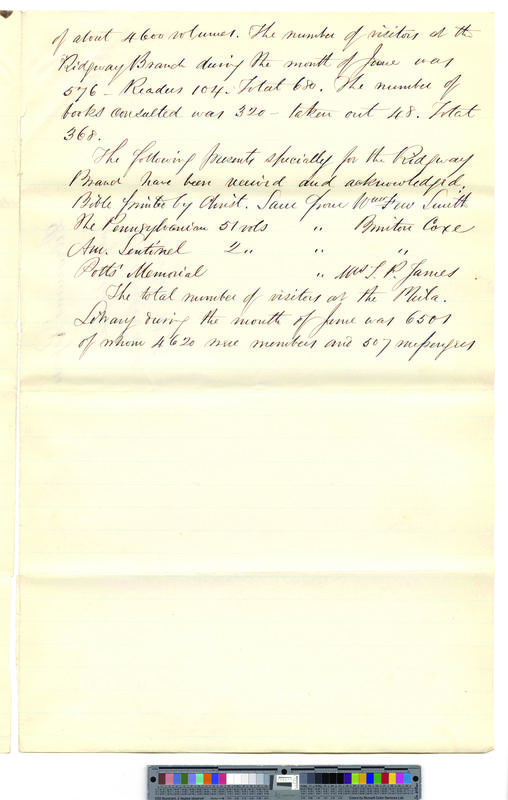 of about 4600 volumes. The number of visitors at the
Ridgway Branch during the month of June was
576 – Readers 104. Total 680. The number of
books consulted was 320 – taken out 48. Total
368.
The following presents specially for the Ridgway
Branch have been received and acknowledged.
Bible printed by Christ. Saur from Wm Few Smith
The Pennsylvanian 51 vols " Brinton Coxe
Am. Sentinel 2 " " "
Potts' Memorial " Mrs T. P. James
The total number of visitors at the Phila.
Library during the month of June was 6501
of whom 4620 were members and 507 messengers